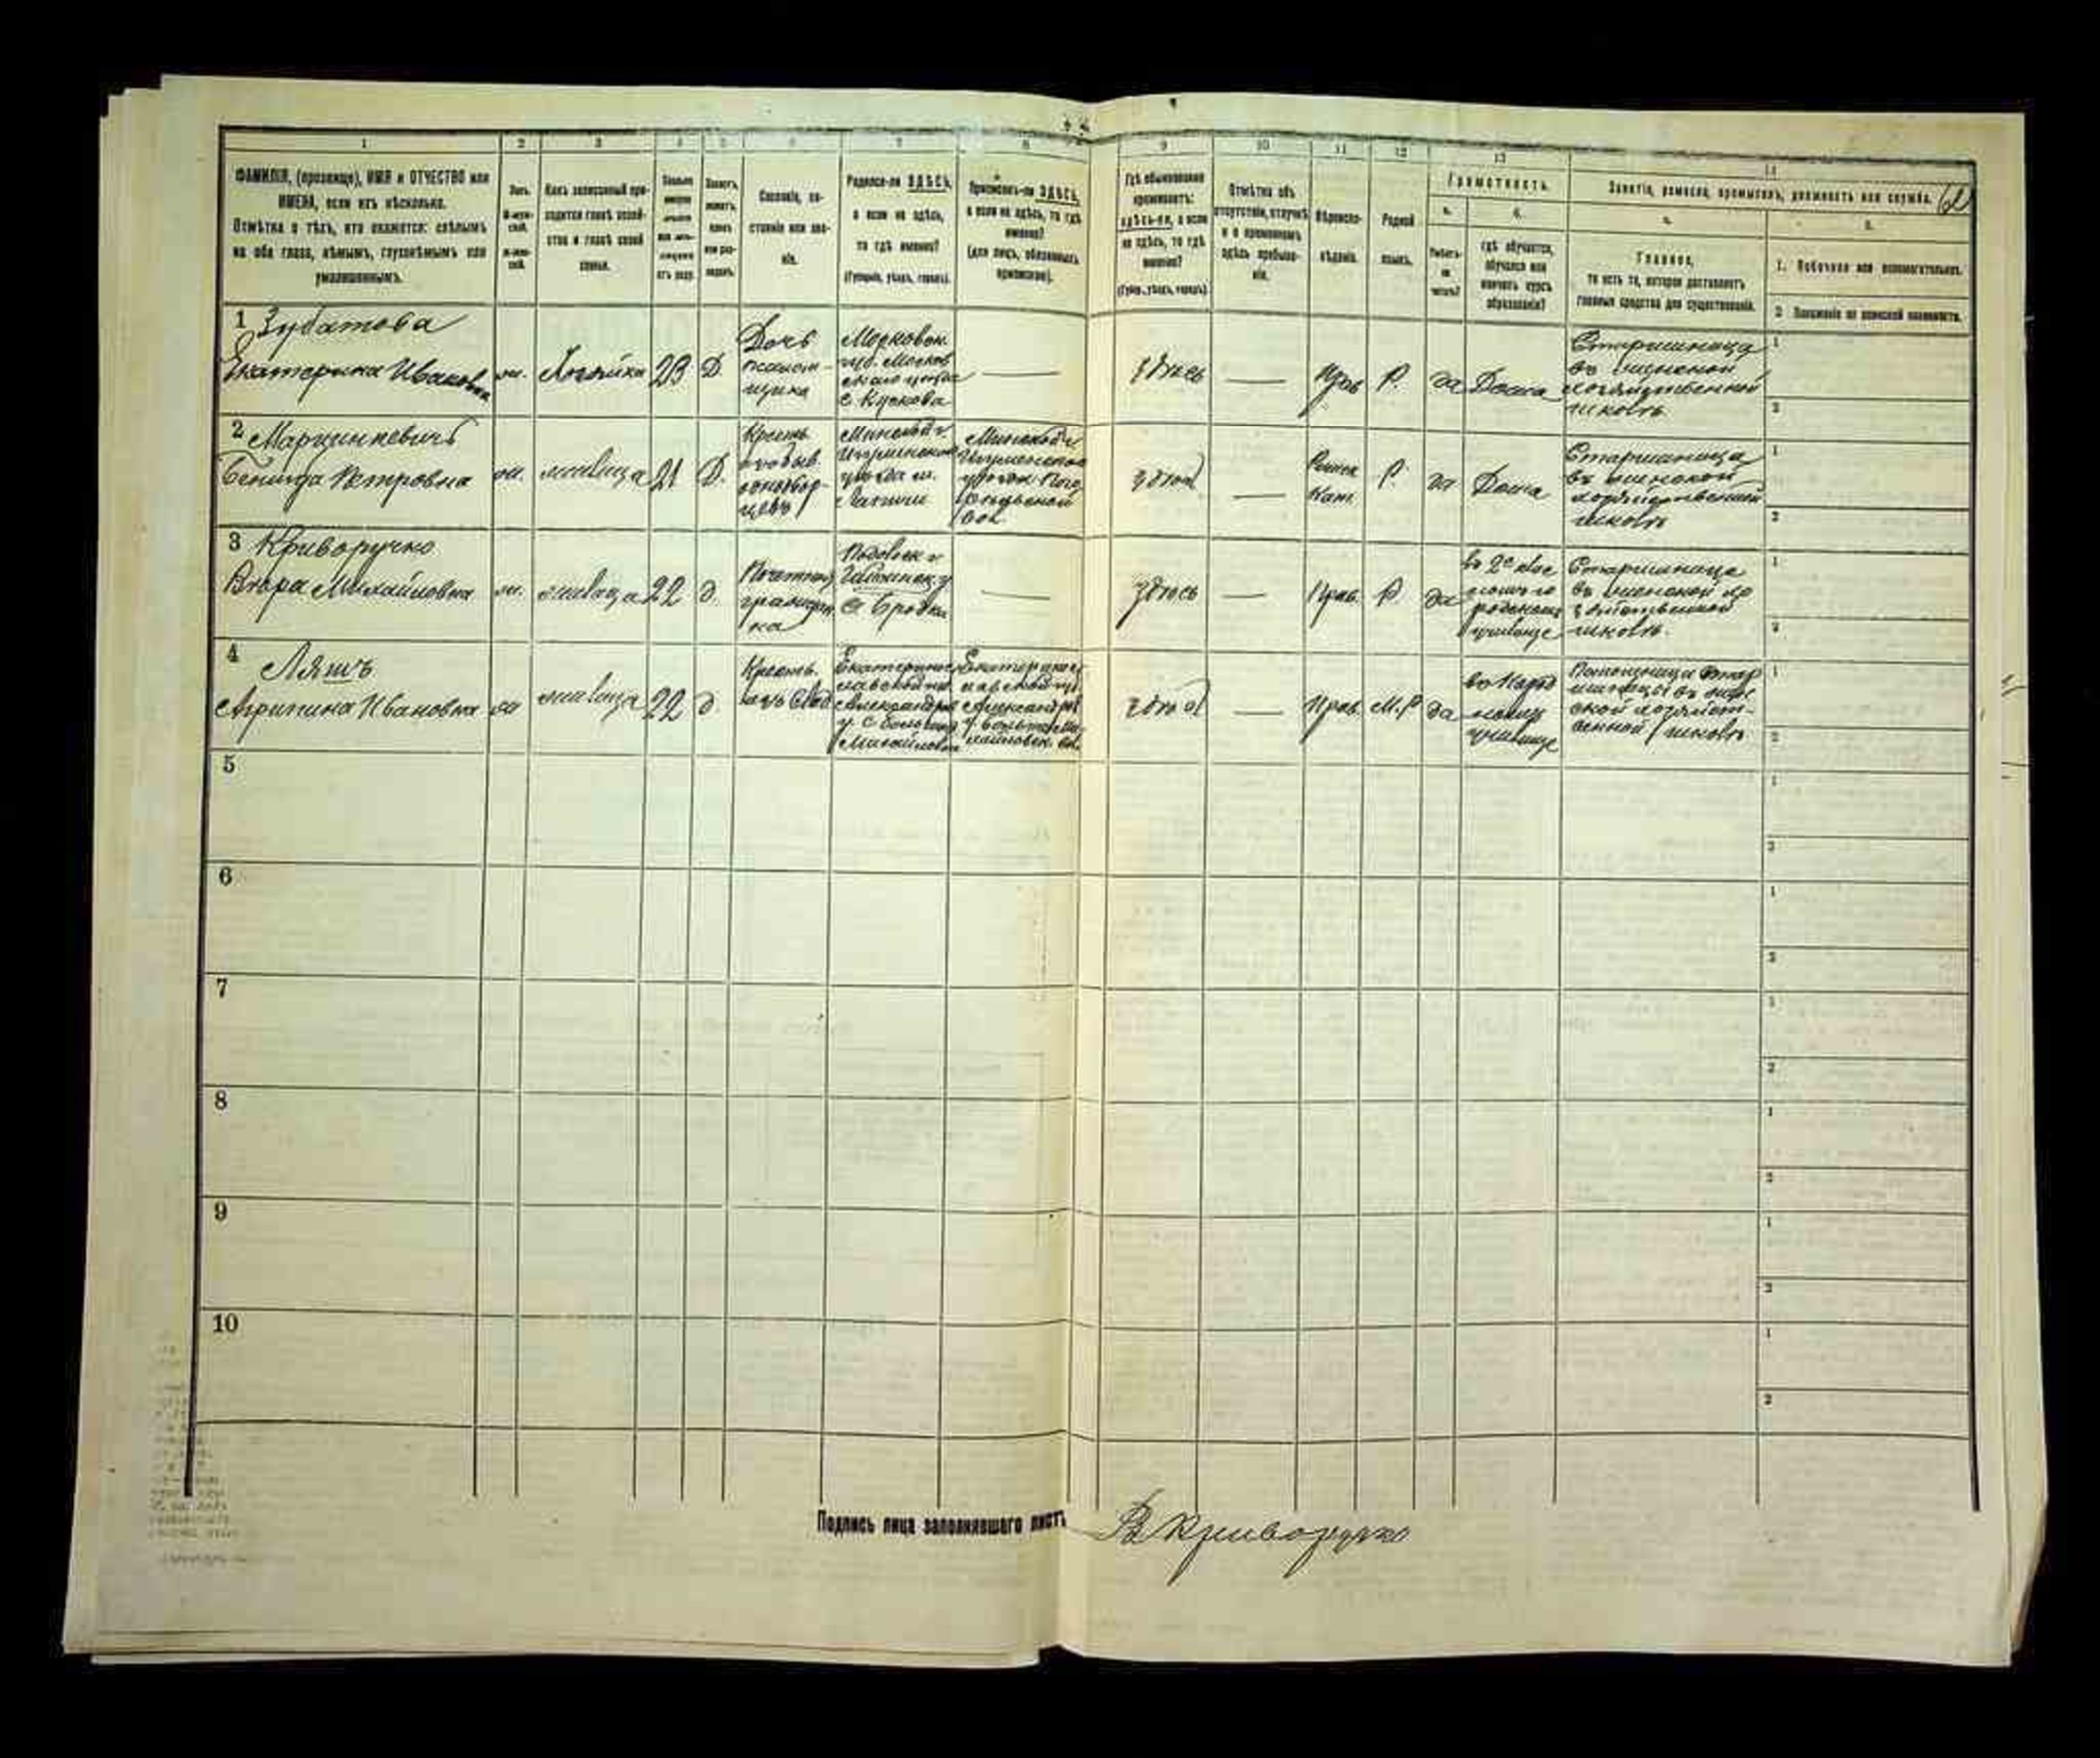 1 2 3 4 5 6 7 8 9 10 11 12 13 14
ФАМИЛІЯ, (прозвище), ИМЯ и ОТЧЕСТВО или
ИМЕНА, если ихъ нѣсколько.
Отмѣтка о тѣхъ, кто окажется: слѣпымъ
на оба глаза, нѣмымъ, глухонѣмымъ или
умалишеннымъ.
Полъ.
Какъ записанный при-
ходится главѣ хозяй-
ства и главѣ своей
семьи.
Сословіе, со-
стояніе или зва-
ніе.
Родился-ли ЗДѢСЬ,
а если не здѣсь,
то гдѣ именно?
(Губернія, уѣздъ, городъ).
Приписанъ-ли ЗДѢСЬ,
а если не здѣсь, то гдѣ
именно?
(для лицъ, обязанныхъ
припискою).
Гдѣ обыкновенно
проживаетъ:
здѣсь-ли, а если
не здѣсь, то гдѣ
именно?
(Губер., уѣздъ, городъ).
Отмѣтка объ
отсутствіи, отлучкѣ
и о временномъ
здѣсь пребыва-
ніи.
Вѣроиспо-
вѣданіе.
Родной
языкъ.
Грамотность.
а.
б.
гдѣ обучается,
обучался или
кончилъ курсъ
образованія?
Занятіе, ремесло, промыселъ, должность или служба.
62
а.
Главное,
то есть то, которое доставляетъ
главныя средства для существованія.
б.
1. Побочное или вспомогательное.
2 Положеніе по воинской повинности.
1 Зубатова
Екатерина Ивановна
ж.
Хозяйка
23
Д.
Дочь
псалом-
щика
Московск.
губ. Москов
скаго уѣзда
с. Кускова
—
здѣсь
—
Прав
Р.
да
Дома
Старшинница
въ женской
хозяйственной
школѣ
1
2
2 Марцинкевичъ
Петровна
ж.
жилица
21
Д.
Крест.
Минской г.
Игуменскаго
уѣзда м.
Минской г.
Игуменскаго
здѣсь
—
Римск
Кат.
Р.
да
Дома
Старшинница
въ женской
хозяйственной
школѣ
1
2
3 Криворучко
Вѣра Михайловна
ж.
жилица
22
д.
Почетная
гражданка
Подольск г
с. Бродки
—
здѣсь
—
Прав.
Р.
да
въ 2х клас
училище
Старшинница
въ женской хо
зяйственной
школѣ.
1
2
4 Ляшъ
Агрипина Ивановна
ж
жилица
22
д
Крест.
Екатеринос
лавской гу
Александров
у. с. Больш
Михайловк
Екатеринос
лавской гу
Александров
у. Больше Ми
хайловск. вол.
здѣсь
—
Прав.
М.Р
да
въ Народ
номъ
училище
Помощница Стар
шинницы въ жен
ской хозяйст-
венной школѣ
1
2
5
1
2
6
1
2
7
1
2
8
1
2
9
1
2
10
1
2
Подпись лица заполнявшаго листъ
В Криворучко